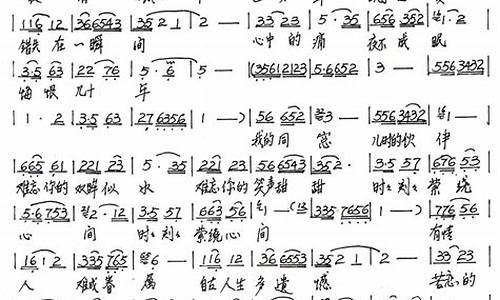 | 1 1 6 1 2 | 3 6 6 5 4 3 | 3 5 2 1 | 2 — | 3 3 2 3 | 5 · 3 5 | 6 5 6 3 5 2 | 1 · 2 |
错失 在 一 瞬 间 心中 的 痛 夜不成眠
| 3·5 6 3 | 2 2 7 6 | 5 · 6 | 5 — | (3 5 6 1 2 1 2 3 | 5·6 6 5 2 | 3 — | 5 5 5 6 3 4 3 2 |
悔恨 几十 年
| 1 · 2 | 3·5 6 3 | 2 7 6 3 5 6 | 1 —) | 5 6 6 5 2 | 3 — | 5 5 6 3 4 3 2 | 1 — |
我的同 窗 儿时的伙 伴
| 6 6 5 6 1 | 2 2 1 2 3 | 5 · 3 5 | 2 2 1 2 3 | 5 6 6 5 4 3 | 3 5 2 · | 3·5 5 7 | 6 7 6 5 3 |
难忘你的 双眸似 水 难忘你的 笑声甜 甜 时时刻刻 萦绕
| 5·6 7 5 3 | 2 · 1 2 | 3·5 5 7 | 6 6 3 5 6 | 1 — (1 3 | 3 3 5 7 6 5 6 | 1 —) | 7 7 6 5 6 |
心 间 时时刻刻 萦绕心 间 有情
| 1 2 1 2 | 3 3 5 7 6 5 | 1 6 — | 1 1 6 1 2 | 3 6 6 5 5 3 | 3 5 2 1 | 2 — | 3 3 2 3 |
人 难成眷 属 自古人生 多遗 憾 苦恋的